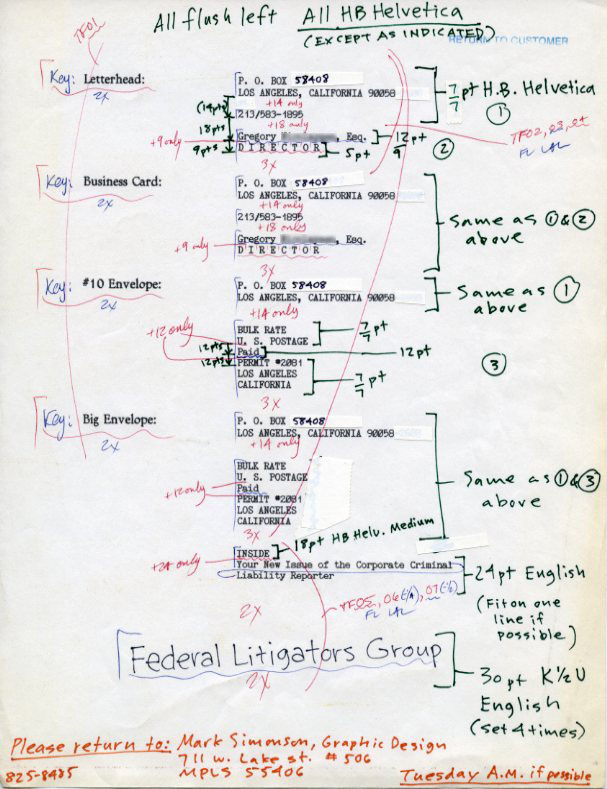 TF01
All flush left All HB Helvetica
(EXCEPT AS INDICATED)
RETURN TO CUSTOMER
Key: Letterhead:
2x
P. O. BOX 58408
LOS ANGELES, CALIFORNIA 90058
7/7 pt H.B. Helvetica
①
(14pts)
+14 only
213/583-1895
18pts
+18 only
+9 only
9pts
Gregory Esq.
12/9 pt
②
DIRECTOR
5pt
TF02, 03, 04
FL LAL
3x
Key: Business Card:
2x
P. O. BOX 58408
LOS ANGELES, CALIFORNIA 90058
+14 only
213/583-1895
+18 only
+9 only
Gregory Esq.
DIRECTOR
Same as ① & ②
above
3x
Key: #10 Envelope:
2x
P. O. BOX 58408
LOS ANGELES, CALIFORNIA 90058
Same as ①
above
+14 only
+12 only
BULK RATE
U. S. POSTAGE
7/7 pt
12pts
Paid
12pt
12pts
PERMIT #2081
LOS ANGELES
CALIFORNIA
7/7 pt
③
3x
Key: Big Envelope:
2x
P. O. BOX 58408
LOS ANGELES, CALIFORNIA 90058
+14 only
BULK RATE
U. S. POSTAGE
+12 only
Paid
PERMIT #2081
LOS ANGELES
CALIFORNIA
Same as ① & ③
above
3x
18pt HB Helv. Medium
+24 only
INSIDE
Your New Issue of the Corporate Criminal
Liability Reporter
24pt English
(Fit on one
line if
possible)
2x
TF05, 06, 07
FL LAL
Federal Litigators Group
30pt K½U
English
(set 4 times)
2x
Please return to: Mark Simonson, Graphic Design
711 W. Lake St. #506
825-8485
MPLS 55406
Tuesday A.M. if possible